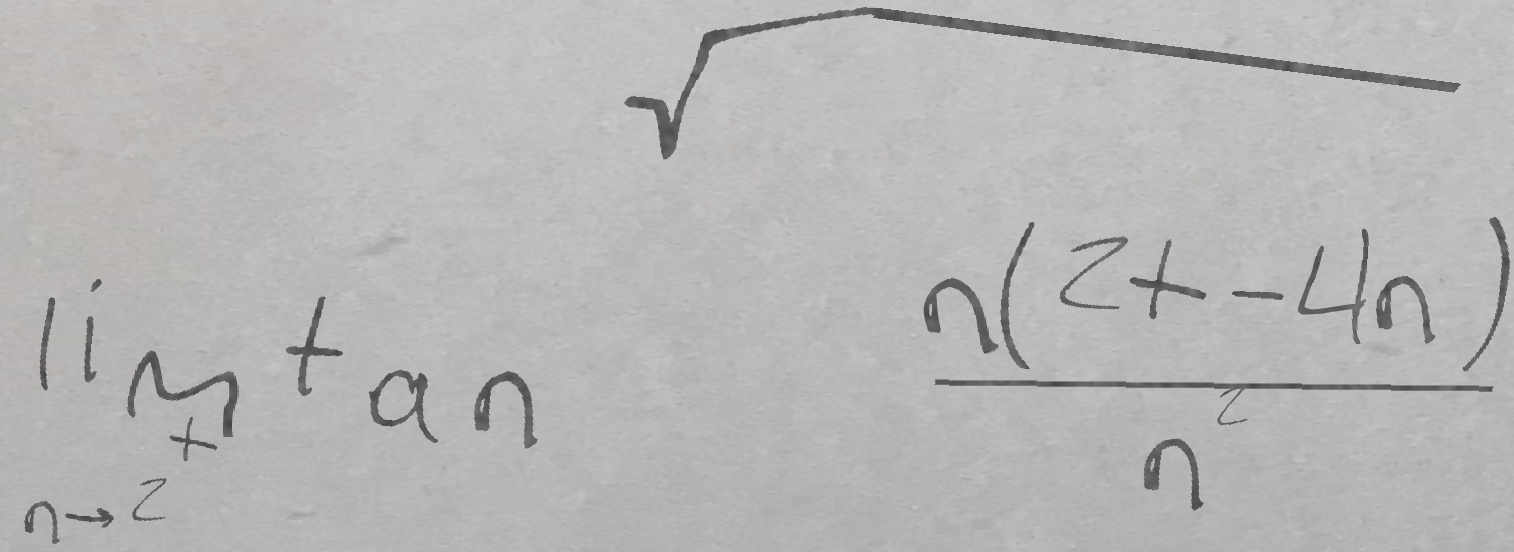 \lim_{n \to 2^+} \tan \sqrt{\frac{n(2+-4n)}{n^2}}